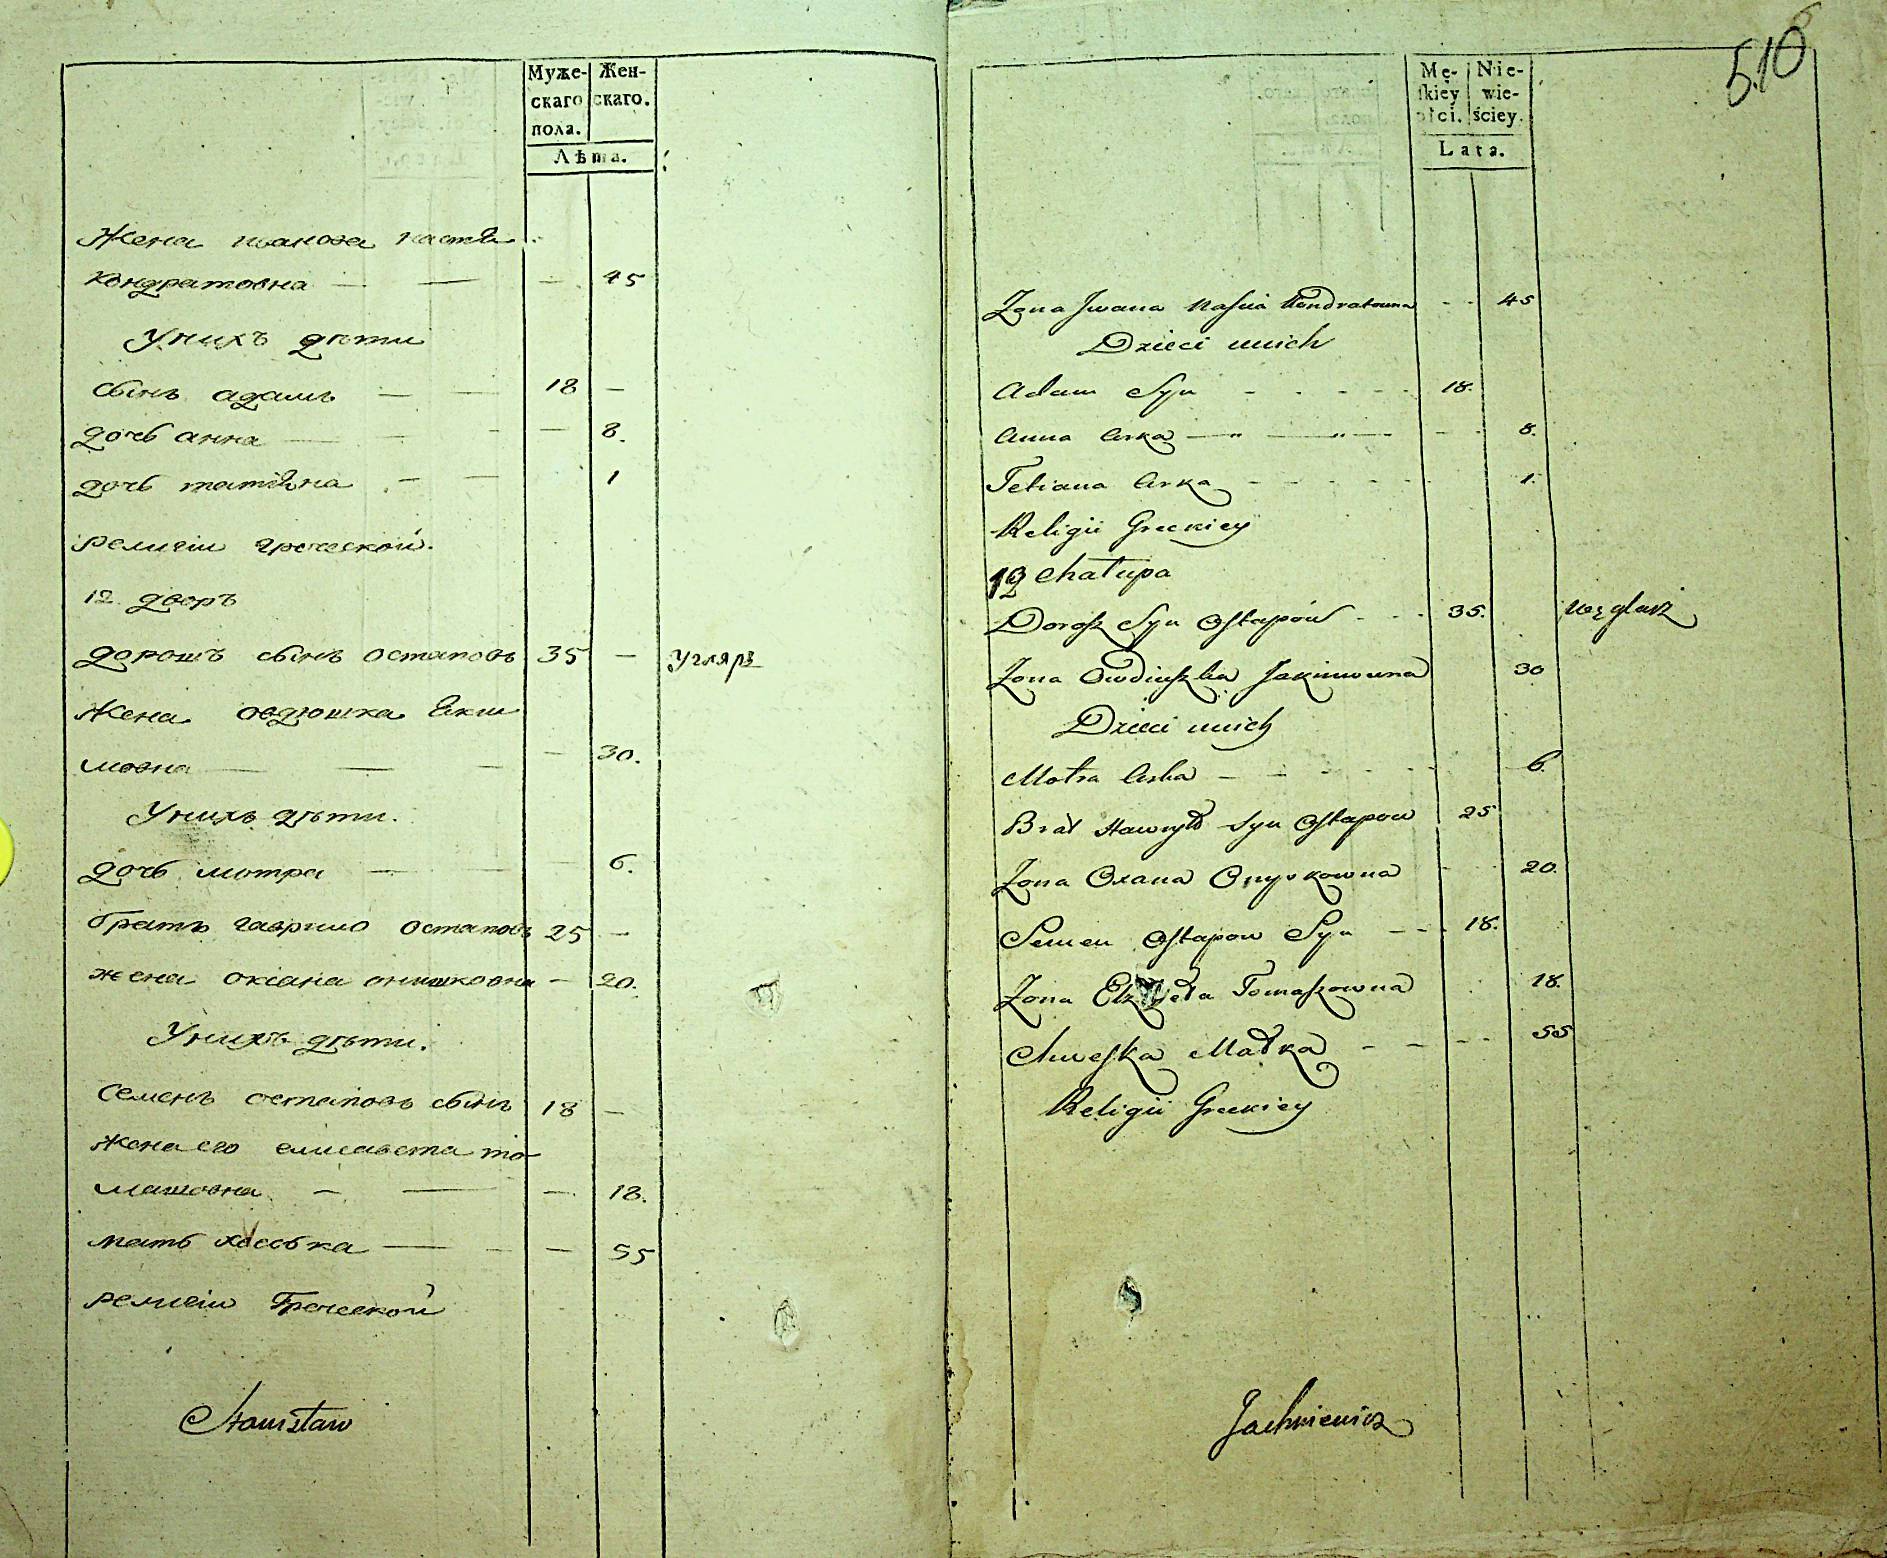 Муже-
скаго
пола.
Жен-
скаго.
Лѣта.
Жена иванова настя
Кондратовна — — — 45
Унихъ дѣти
сынъ адамъ — — 18 —
дочь анна — — — 8.
дочь татіяна — — 1
религіи греческой.
12 дворъ
дорошъ сынъ остаповъ 35 — углярз
Жена овдюшка яки
мовна — — — — 30.
Унихъ дѣти.
дочь мотра — — 6.
братъ гаврило остаповъ 25 —
жена оксана онишковна — 20.
Унихъ дѣти.
Семенъ остаповъ сынъ 18 —
Жена его елисавета то-
машовна — — — 18.
мать хвеська — — — 55
религіи Греческой
Stanisław
510
Mę-
skiey
płci.
Nie-
wie-
ściey.
Lata.
Żona Jwana Nasťia Kondratowna - - 45
Dzieci unich
Adam Syn - - - - 18.
Anna Curka — " — " — - - 8.
Tetiana Curka - - - - - 1.
Religii Greckiey
12 Chałupa
Dorosz Syn Ostapów - - - 35. węglarz
Żona Owdiuszka Jakimowna 30
Dzieci unich
Motra Curka - - - - - 6.
Brat Hawryło Syn Ostapow 25
Żona Oxana Onyśkowna - - 20.
Semen Ostapow Syn - - - 18.
Żona Elżbieta Tomaszowna 18.
Chweśka Matka - - - - 55
Religii Greckiey
Jachniewicz